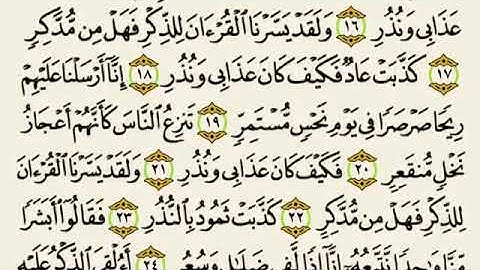 عَذَابِى وَنُذُرِ ١٦ وَلَقَدۡ يَسَّرۡنَا ٱلۡقُرۡءَانَ لِلذِّكۡرِ فَهَلۡ مِن مُّدَّكِرٍ
١٧ كَذَّبَتۡ عَادٌ فَكَيۡفَ كَانَ عَذَابِى وَنُذُرِ ١٨ إِنَّآ أَرۡسَلۡنَا عَلَيۡهِمۡ
رِيحًا صَرۡصَرًا فِى يَوۡمِ نَحۡسٍ مُّسۡتَمِرٍّ ١٩ تَنزِعُ ٱلنَّاسَ كَأَنَّهُمۡ أَعۡجَازُ
نَخۡلٍ مُّنقَعِرٍ ٢٠ فَكَيۡفَ كَانَ عَذَابِى وَنُذُرِ ٢١ وَلَقَدۡ يَسَّرۡنَا ٱلۡقُرۡءَانَ
لِلذِّكۡرِ فَهَلۡ مِن مُّدَّكِرٍ ٢٢ كَذَّبَتۡ ثَمُودُ بِٱلنُّذُرِ ٢٣ فَقَالُوٓاْ أَبَشَرًا
مِّنَّا وَٰحِدًا نَّتَّبِعُهُۥٓ إِنَّآ إِذًا لَّفِى ضَلَٰلٍ وَسُعُرٍ ٢٤ أَءُلۡقِىَ ٱلذِّكۡرُ عَلَيۡهِ